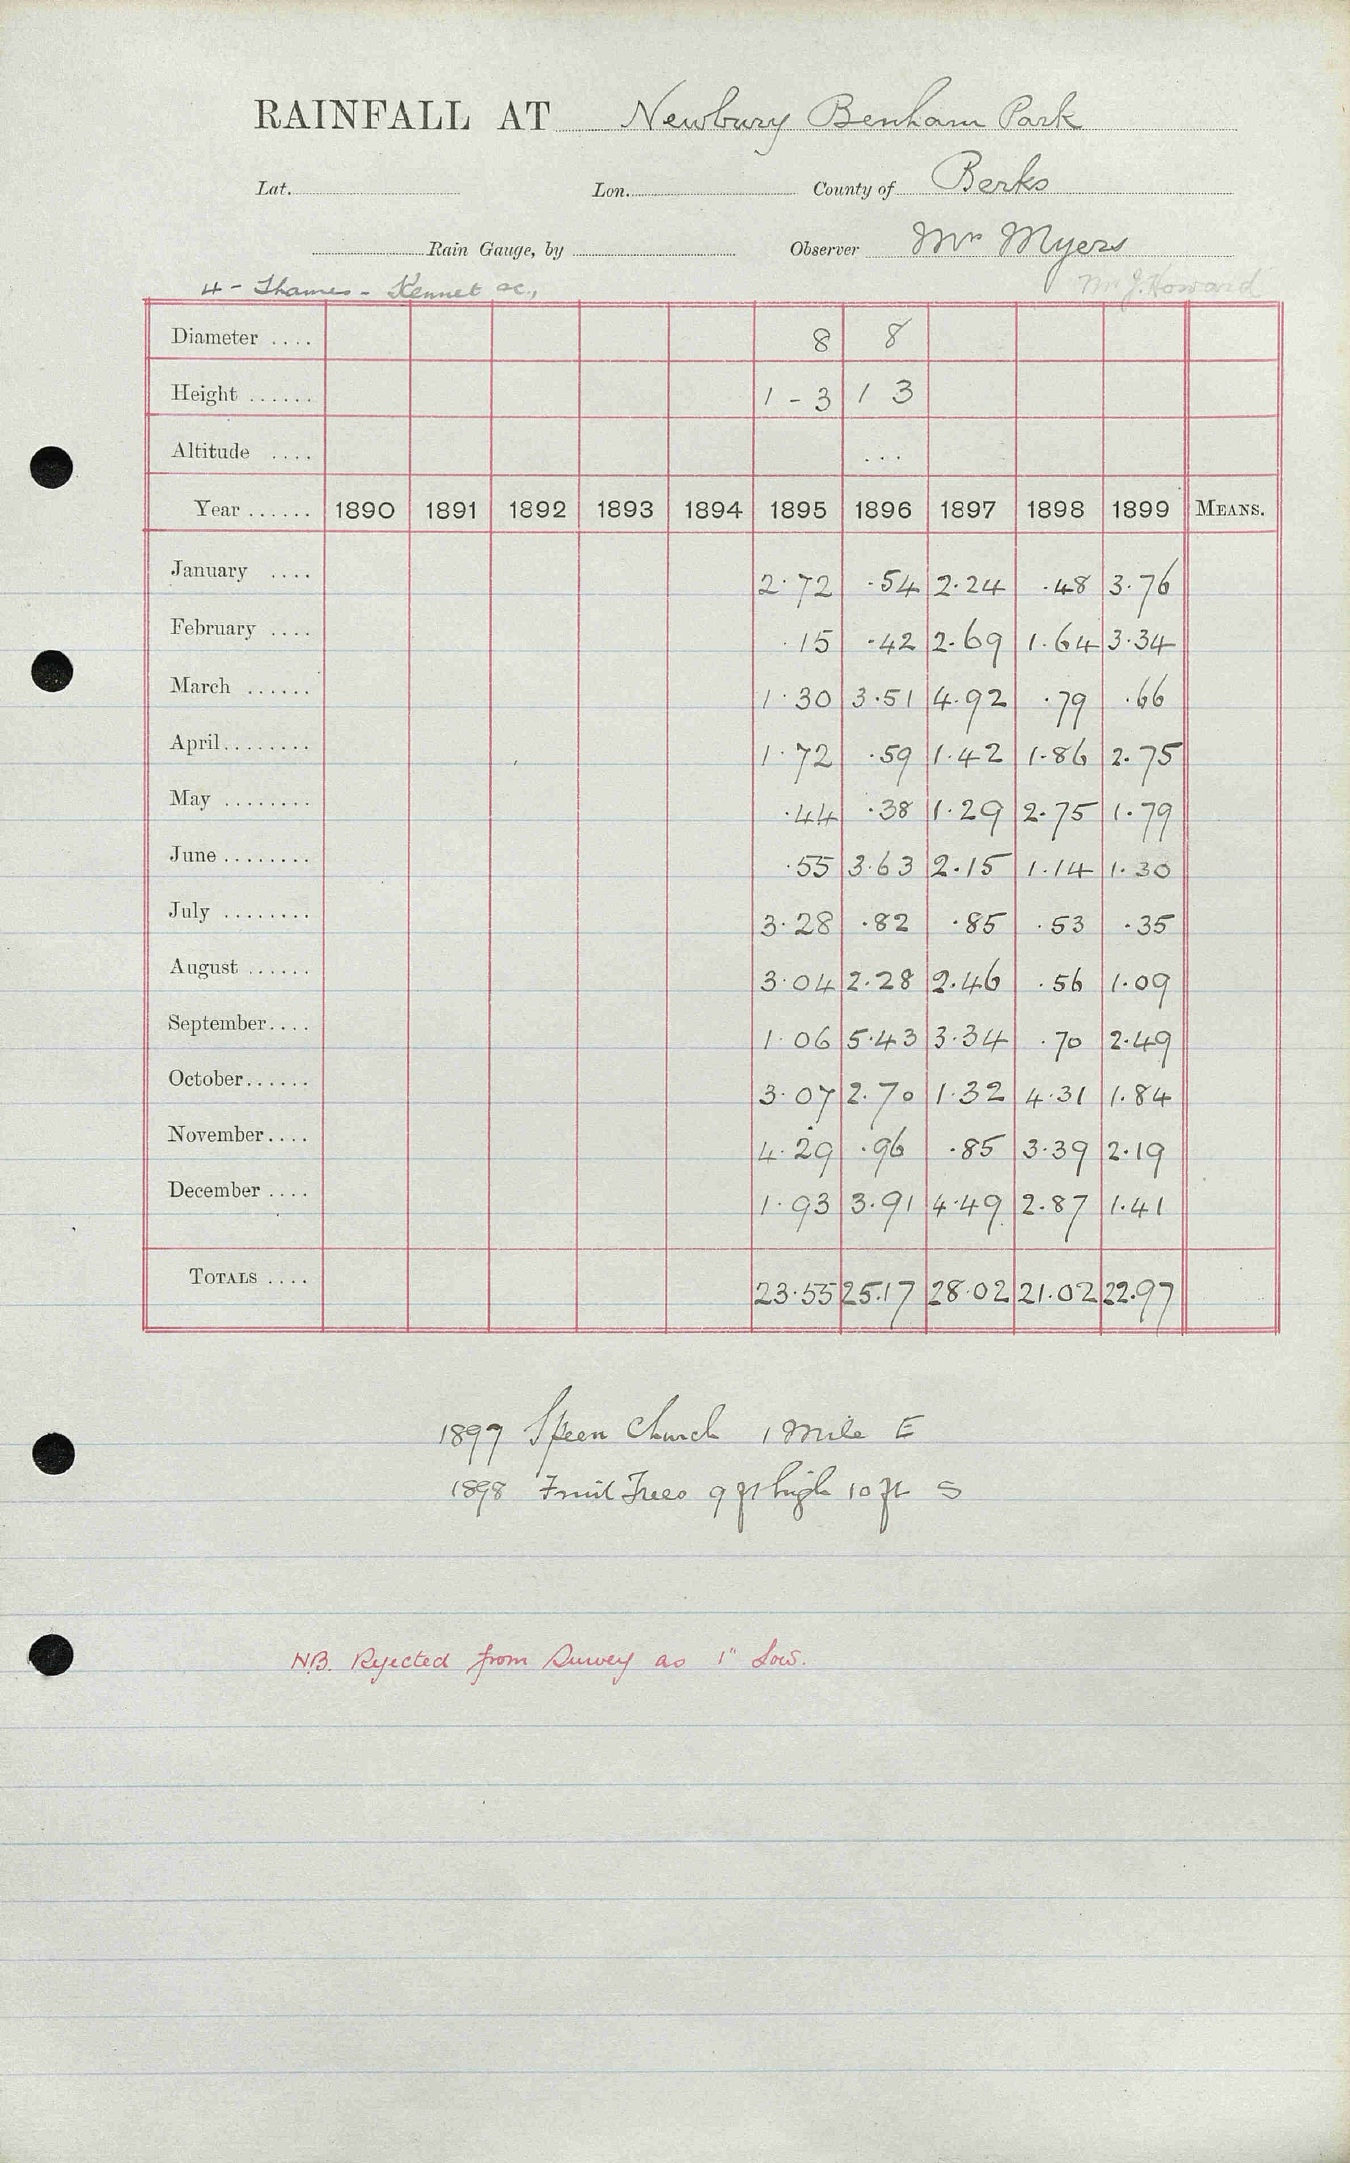 RAINFALL AT Newbury Benham Park
Lat. Lon. County of Berks
Rain Gauge, by Observer Mr Myers
4 - Thames - Kennet &c., Mr J. Howard
Diameter .... 8 8
Height ...... 1 - 3 1 3
Altitude .... ...
Year ...... 1890 1891 1892 1893 1894 1895 1896 1897 1898 1899 MEANS.
January .... 2.72 .54 2.24 .48 3.76
February .... .15 .42 2.69 1.64 3.34
March ...... 1.30 3.51 4.92 .79 .66
April........ 1.72 .59 1.42 1.86 2.75
May ........ .44 .38 1.29 2.75 1.79
June ........ .55 3.63 2.15 1.14 1.30
July ........ 3.28 .82 .85 .53 .35
August ...... 3.04 2.28 2.46 .56 1.09
September.... 1.06 5.43 3.34 .70 2.49
October...... 3.07 2.70 1.32 4.31 1.84
November.... 4.29 .96 .85 3.39 2.19
December .... 1.93 3.91 4.49 2.87 1.41
TOTALS .... 23.55 25.17 28.02 21.02 22.97
1897 Speen Church 1 Mile E
1898 Fruit Trees 9 ft high 10 ft S
N.B. Rejected from Survey as 1" low.